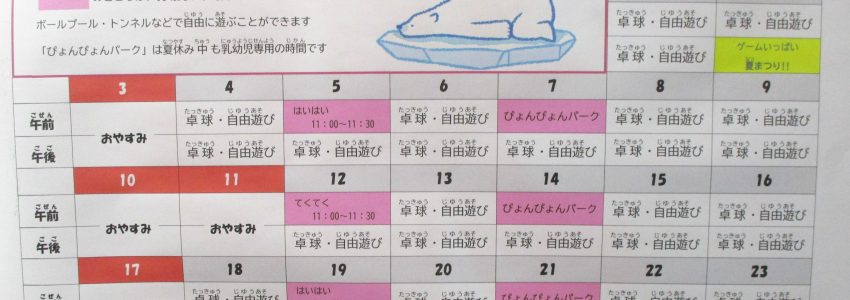 ボールプール・トンネルなどで自由に遊ぶことができます
「ぴょんぴょんパーク」は夏休み中も乳幼児専用の時間です
卓球・自由遊び 卓球・自由遊び
卓球・自由遊び ゲームいっぱい
夏まつり!!
3 4 5 6 7 8 9
午前 おやすみ 卓球・自由遊び はいはい 11:00～11:30 卓球・自由遊び ぴょんぴょんパーク 卓球・自由遊び 卓球・自由遊び
午後 卓球・自由遊び 卓球・自由遊び 卓球・自由遊び 卓球・自由遊び 卓球・自由遊び 卓球・自由遊び
10 11 12 13 14 15 16
午前 おやすみ おやすみ てくてく 11:00～11:30 卓球・自由遊び ぴょんぴょんパーク 卓球・自由遊び 卓球・自由遊び
午後 卓球・自由遊び 卓球・自由遊び 卓球・自由遊び 卓球・自由遊び 卓球・自由遊び
17 18 19 20 21 22 23
はいはい ぴょんぴょんパーク